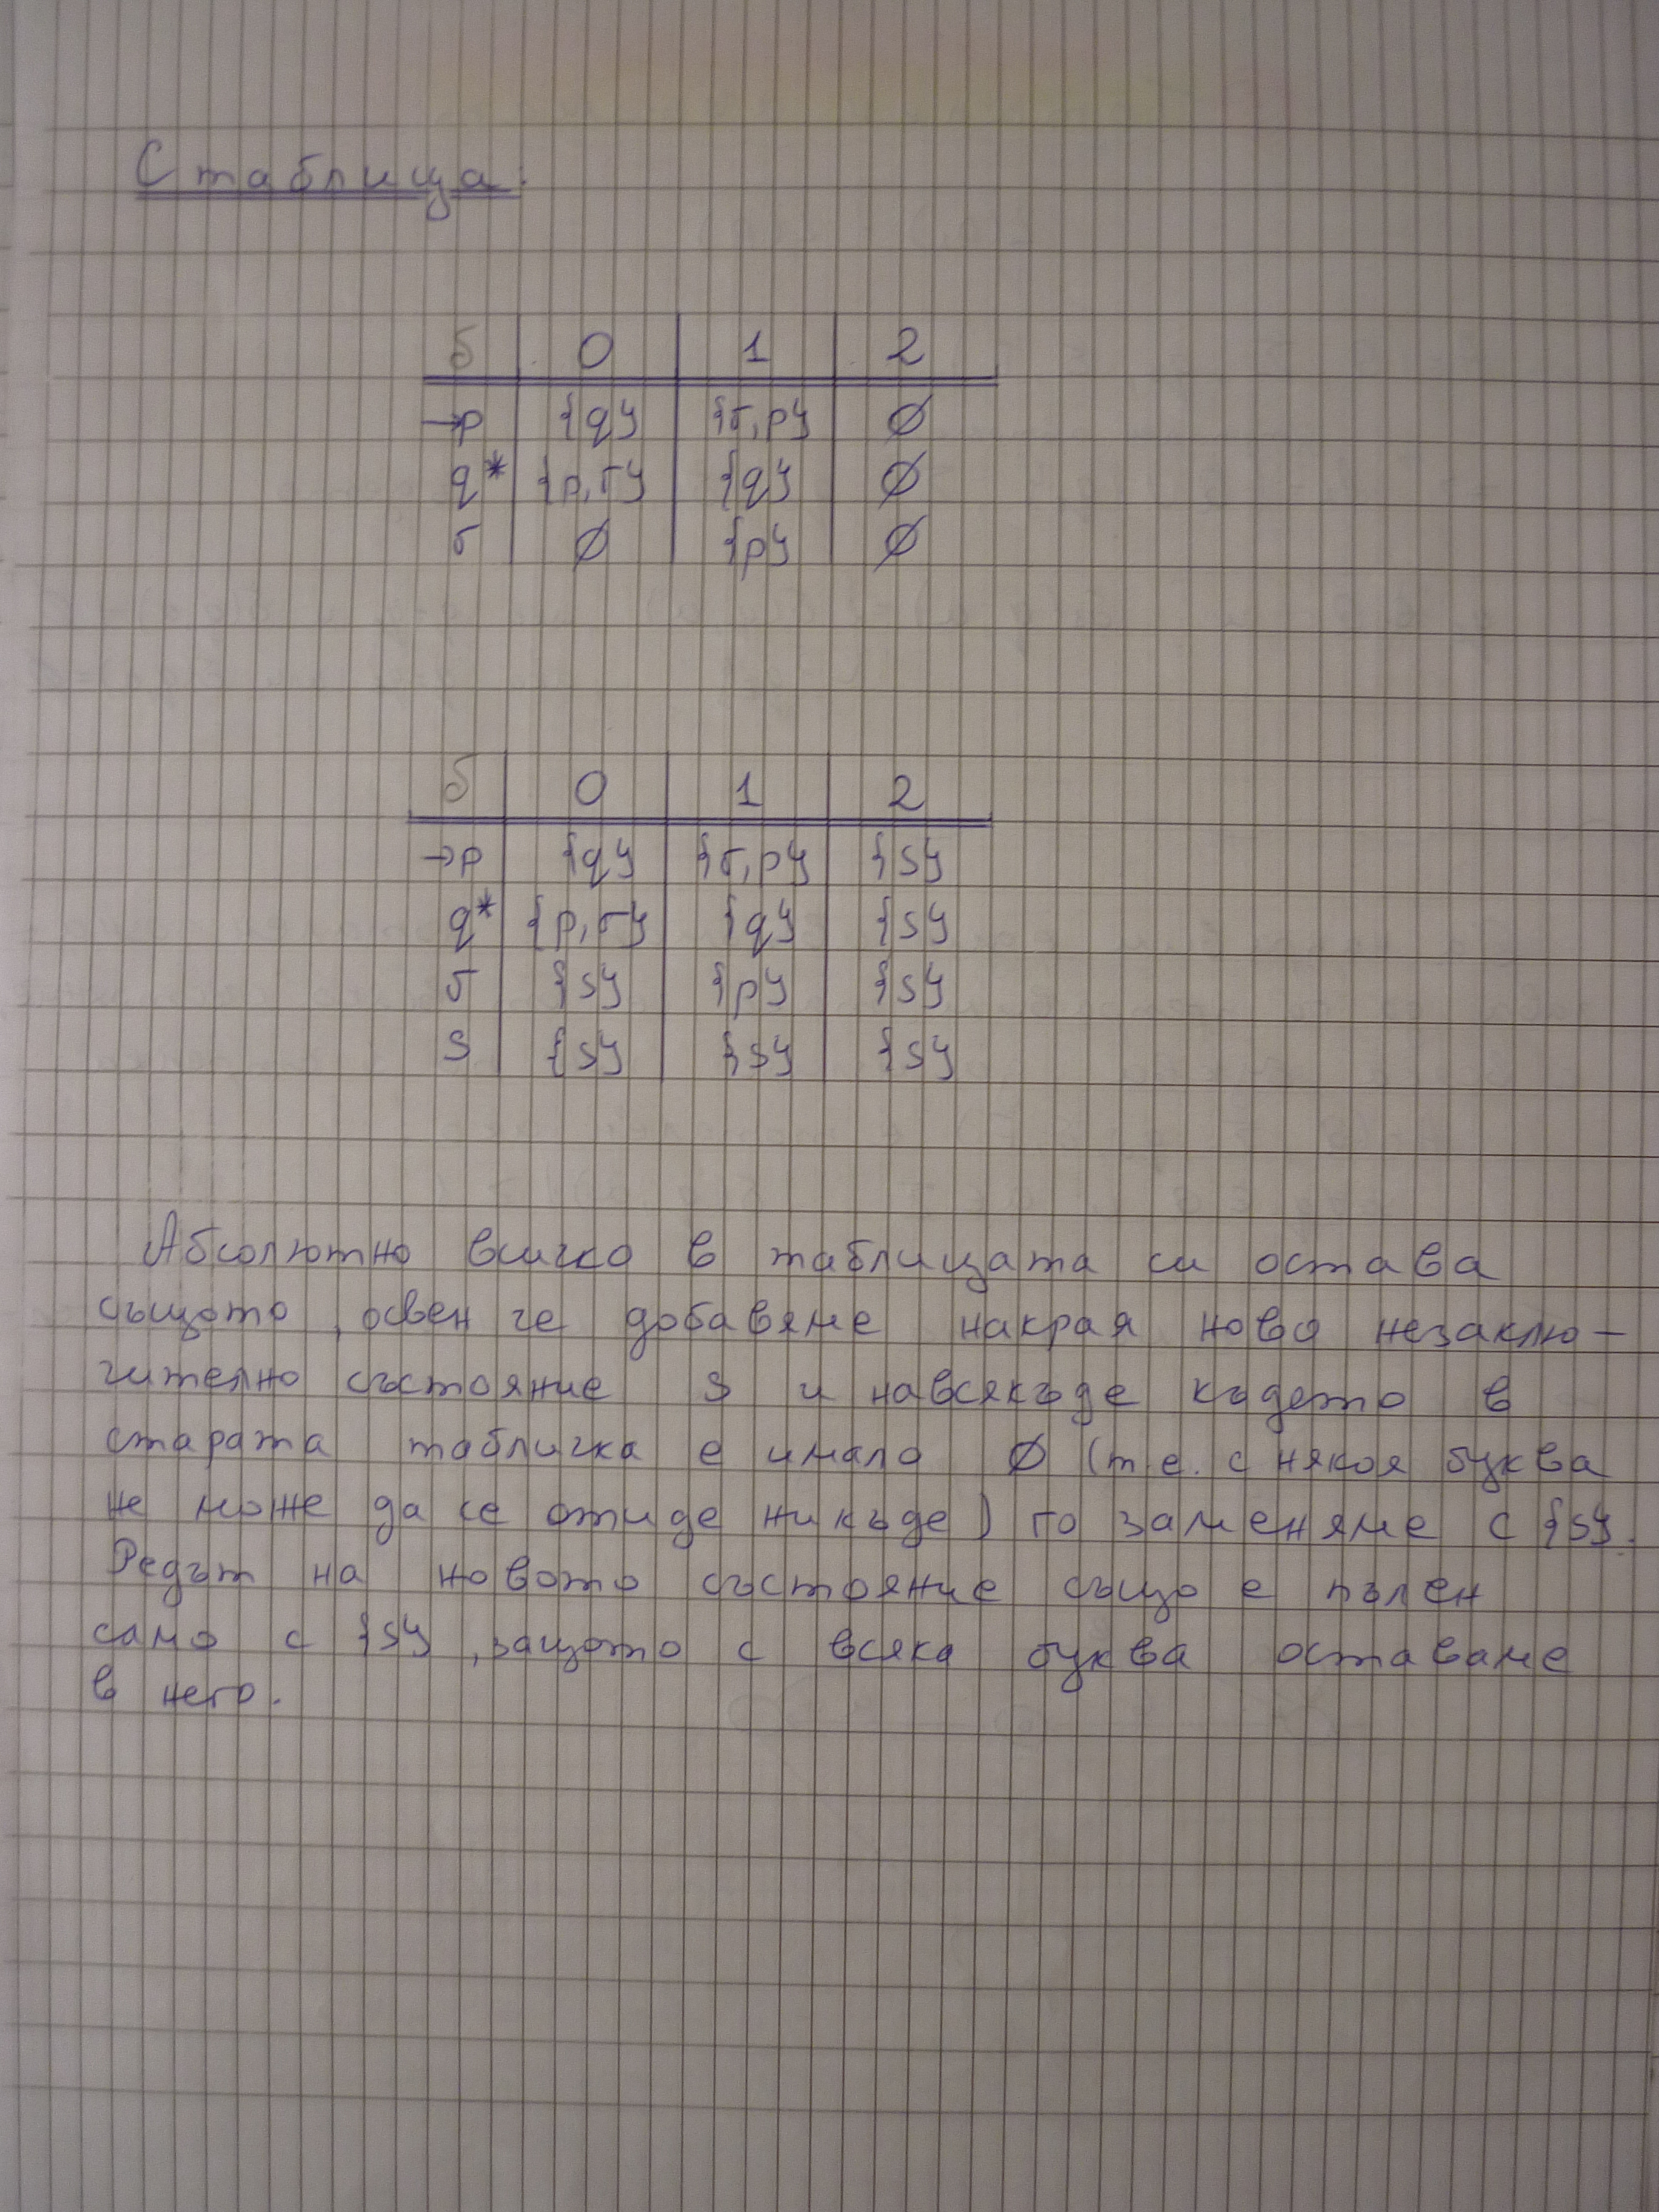 С таблица:
δ 0 1 2
→p {q} {r,p} ∅
q* {p,r} {q} ∅
r ∅ {p} ∅
δ 0 1 2
→p {q} {r,p} {s}
q* {p,r} {q} {s}
r {s} {p} {s}
s {s} {s} {s}
Абсолютно всичко в таблицата си остава
същото, освен че добавяме накрая ново незаклю-
чително състояние s и навсякъде където в
старата табличка е имало ∅ (т.е. с някоя буква
не може да се отиде никъде) го заменяме с {s}.
Редът на новото състояние също е пълен
само с {s}, защото с всяка буква оставаме
в него.